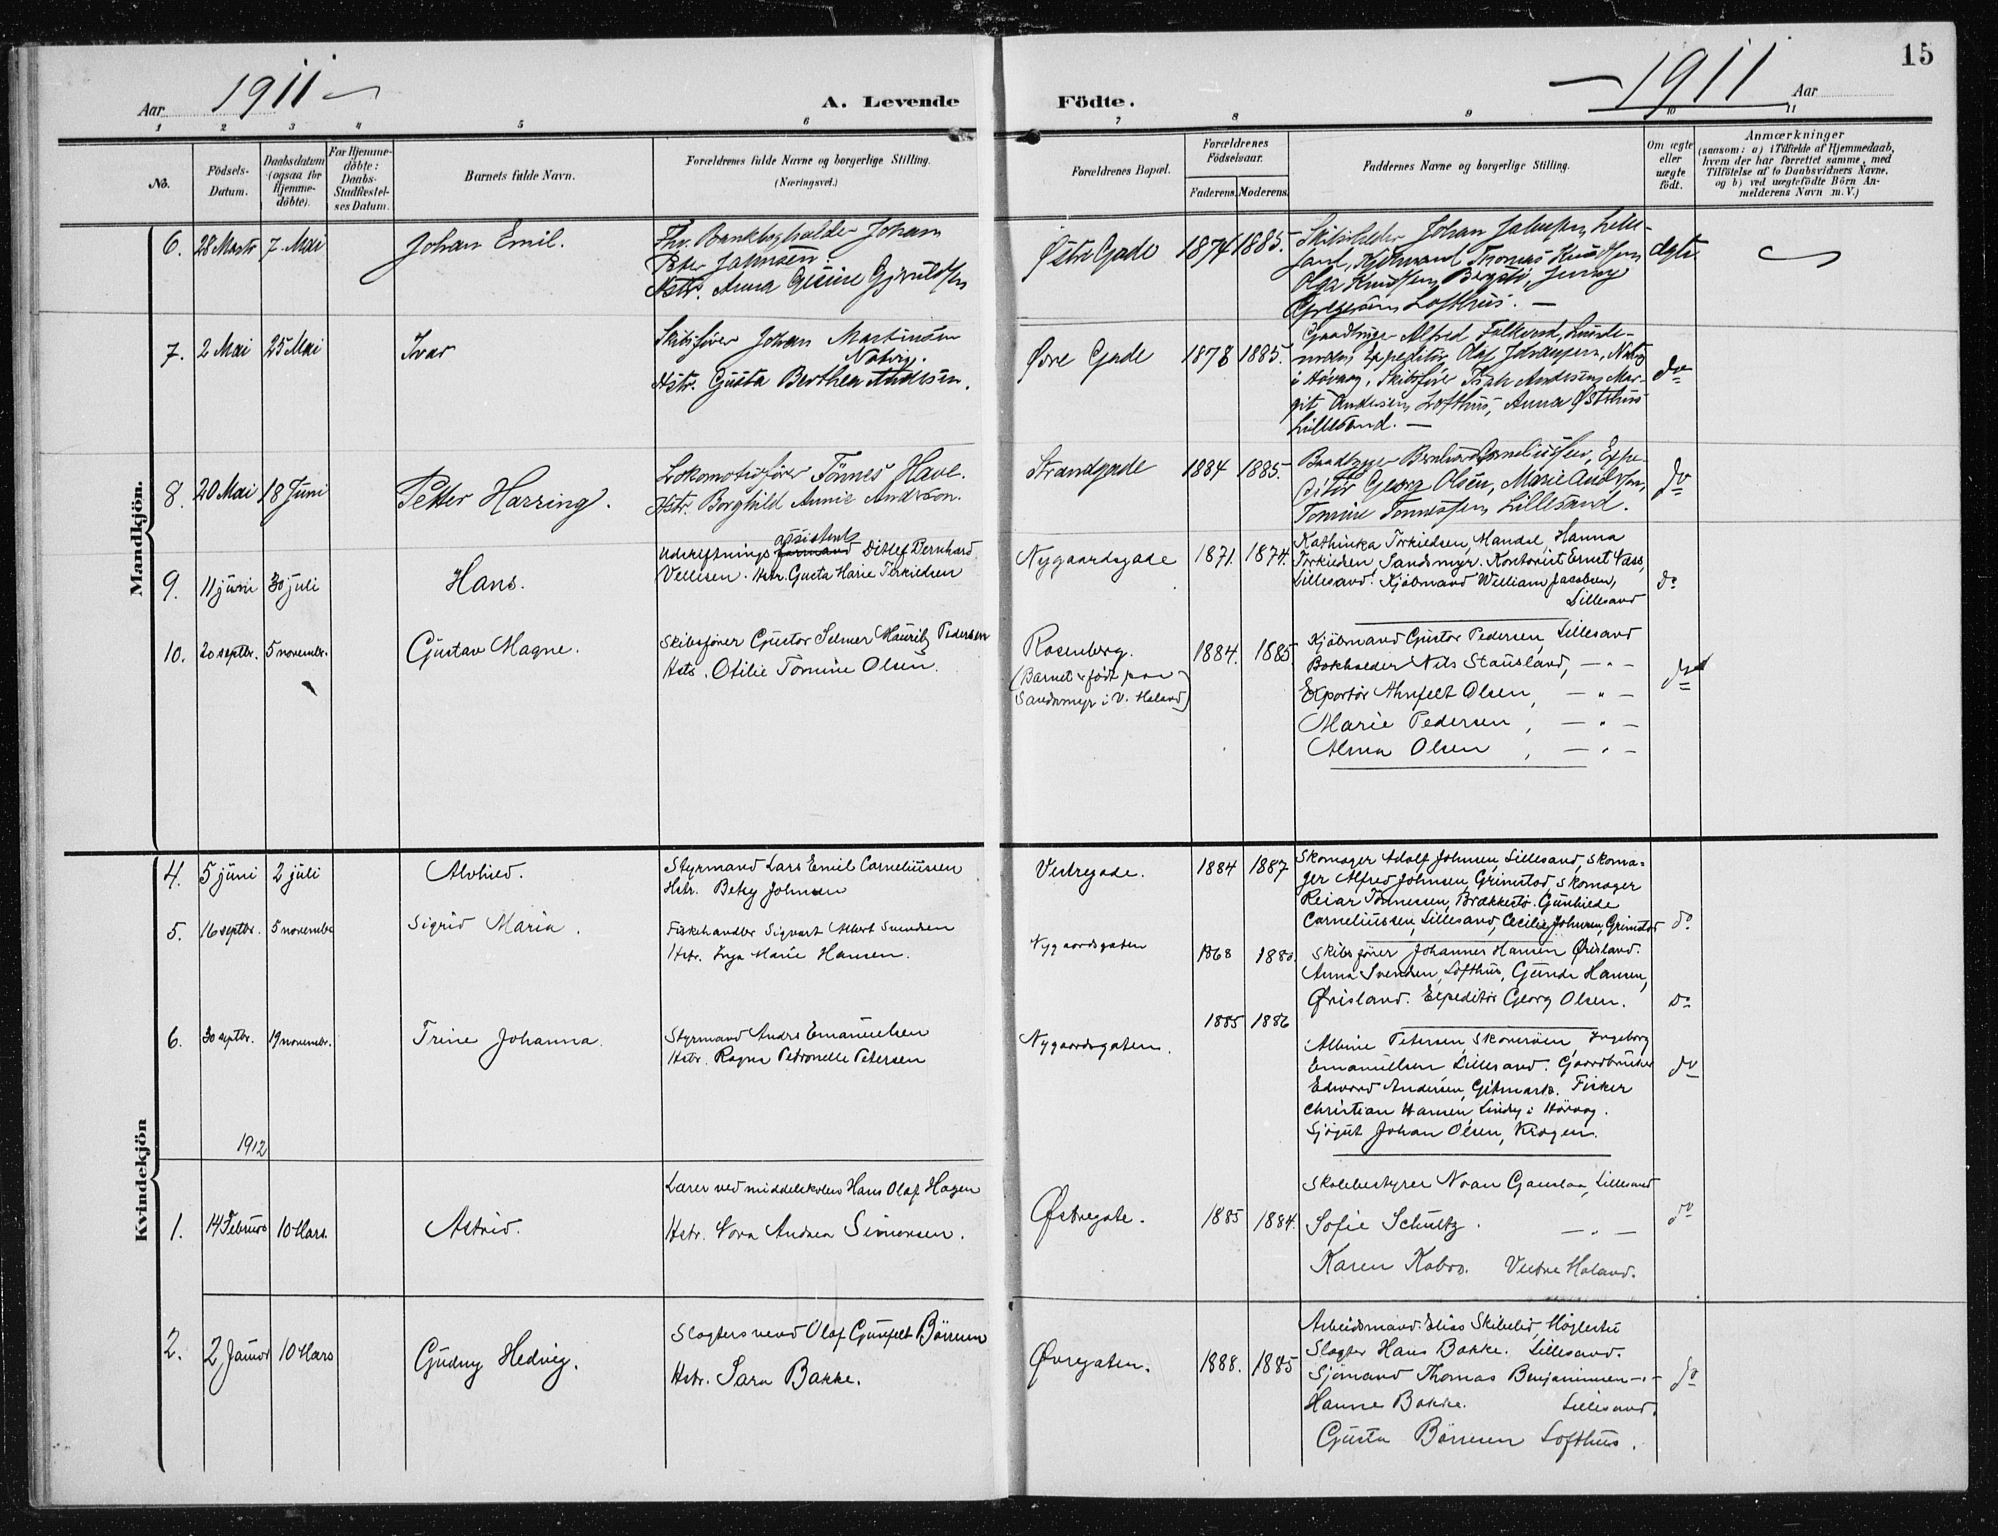 15
Aar 1911
A. Levende Födte.
1911 Aar
1 2 3 4 5 6 7 8 9 10 11
No.
Födsels-Datum.
Daabsdatum (ogsaa for Hjemme-döbte).
For Hjemme-döbte: Daabs-Stadfæstel-ses Datum.
Barnets fulde Navn.
Forældrenes fulde Navne og borgerlige Stilling.
(Næringsvei.)
Forældrenes Bopæl.
Forældrenes Födselsaar.
Faderens. Moderens.
Faddernes Navne og borgerlige Stilling.
Om ægte eller uægte födt.
Anmærkninger
(saasom: a) i Tilfælde af Hjemmedaab,
hvem der har forrettet samme, med
Tilföielse af to Daabsvidners Navne,
og b) ved uægtefödte Börn An-
melderens Navn m. V.)
Mandkjön.
6. 28 Marts 7 Mai Johan Emil.
Fhv. Bankbogholder Johan
Peter Johnsen.
Hstr. Anna Gesine
Østre Gade 1874 1885.
Johan Lille-
sand, Kjøbmand Thomas Knudsen,
Olga Knudsen, Jenny
Lofthus. —
ægte
7. 2 Mai 25 Mai Ivar
Skibsfører Johan Martinsen
Natvig.
Hstr. Gusta Berthea Andersen.
Øvre Gade 1878 1885.
Alfred
Expeditør Olaf
i Høvaag, Skibsfører Isak Andersen, Mar-
git Andersen, Lofthus, Anna Østhus
Lillesand. —
do
8. 20 Mai 18 Juni Petter Harring.
Lokomotivfører Tönnes Have.
Hstr. Borghild Annie Andersen.
Strandgade 1884 1885.
Baadbygger Bernhard Corneliussen, Expe-
ditør Georg Olsen, Marie Andersen,
Tomine Tønnessen, Lillesand.
do
9. 11 juni 30 juli Hans.
assistent
Udskiftnings formand Ditlef Bernhard
Vellesen. Hstr. Gusta Marie Terkildsen
Nygaardsgade 1871. 1874.
Kathinka Torkildsen, Mandal, Hanna
Torkildsen Sandsmyr. Kontorist Ernst Vass,
Lillesand. Kjøbmand William Jacobsen,
Lillesand
do
10. 20 septbr. 5 novembr. Gustav Magne.
Skibsfører Gustav Selmer Mauritz Pedersen
Hstr. Otilie Tomine Olsen.
Rosenberg.
(Barnet er født paa
Sandsmyr i V. Moland)
1884. 1885.
Kjøbmand Gustav Pedersen, Lillesand
Bokholder Nils Stausland, — " —
Exportør Ahnfelt Olsen, — " —
Marie Pedersen, — " —
Alma Olsen, — " —
do
Kvindekjön
4. 5 juni 2 juli Alvhild.
Styrmand Lars Emil Corneliussen
Hstr. Betsy Johnsen
Vestregade. 1884 1887
Skomager Adolf Johnsen, Lillesand, Skoma-
ger Alfred Johnsen, Grimstad, Skomager
Reiar Tönnessen, Brækkestø. Gunhilde
Corneliussen, Lillesand, Cecilie Johnsen, Grimstad
do.
5. 16 septbr. 5 novembr Sigrid Maria.
Fiskehandler Sigvart Albert Svendsen
Hstr. Inga Marie Hansen.
Nygaardsgaten 1868 1880.
Skibsfører Johannes Hansen Ørisland.
Anna Svendsen, Lofthus, Gunda Hansen,
Ørisland. Expeditör Georg Olsen.
Do
6. 30 septbr. 19 novembr. Trine Johanna.
Styrmand Andrs Emanuelsen
Hstr. Ragna Petronelle Petersen
Nygaardsgaten. 1885 1886
Albine Petersen, Skoverøen Ingeborg
Emanuelsen Lillesand. Gaardbruker
Edward Andersen, Gitmark. Fisker
Christian Hansen, Lindøy i Høvaag.
Sjøgut Johan Olsen, Kragen.
do
1912
1. 14 Februar 10 Mars. Astrid.
Lærer ved middelskolen Hans Olaf Hagen
Hstr. Nora Andrea Simonsen.
Østregate. 1885 1884.
Skolebestyrer Noan Lillesand
Sofie Schultz. — " —
Karen Kobro. Vestre Moland.
do
2. 2 Januar 10 Mars Gudny Hedvig.
Slagtersvend Olaf Gunfelt Børresen
Hstr. Sara Bakke.
Øvregaten. 1888. 1885
Arbeidsmand Elias Skibelid, Høgleitt
Slagter Hans Bakke. Lillesand.
Sjømand Thomas Benjaminsen — " —
Hanna Bakke. Lillesand.
Gusta Børresen Lofthus.
do